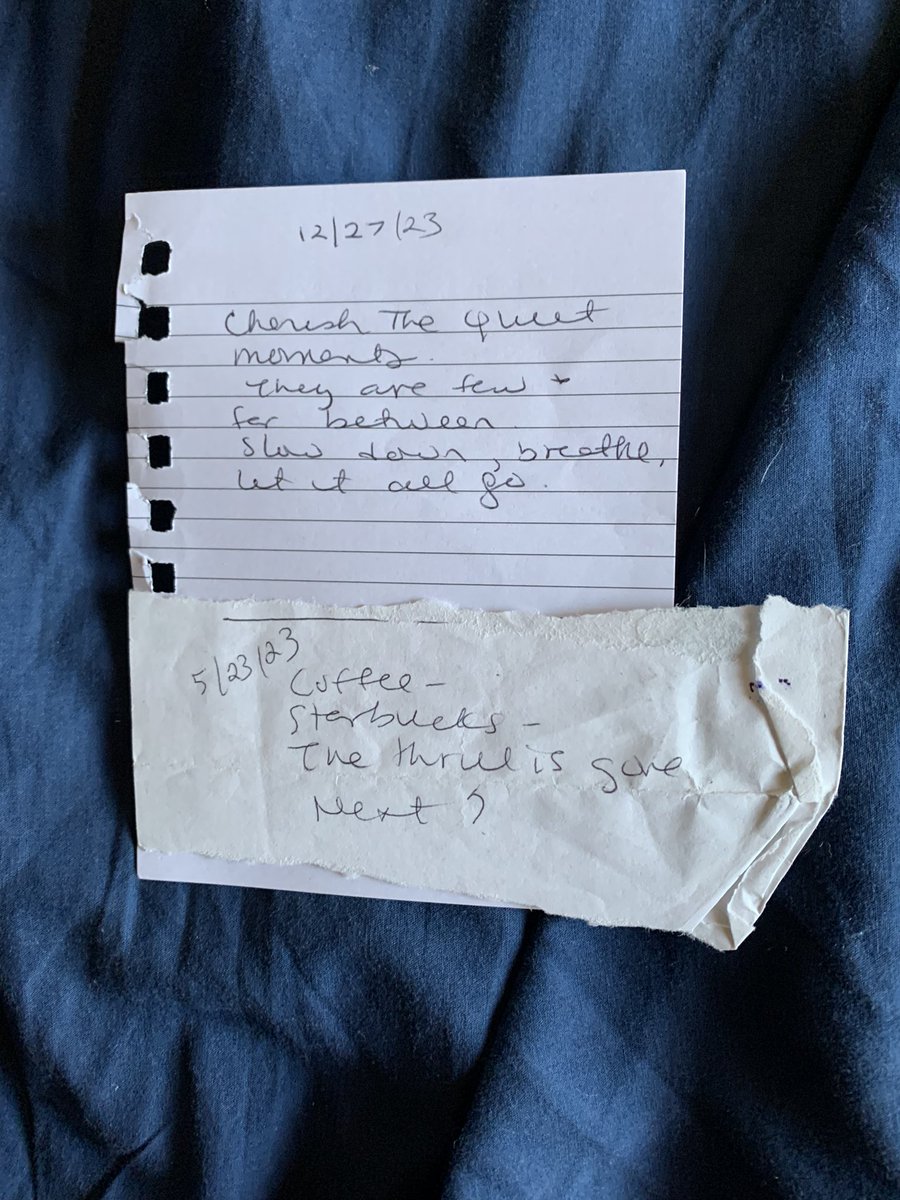 12/27/23
Cherish The quiet
moments.
They are few +
far between.
Slow down, breathe,
let it all go.
5/23/23
Coffee -
Starbucks -
The thrill is gone
Next ?